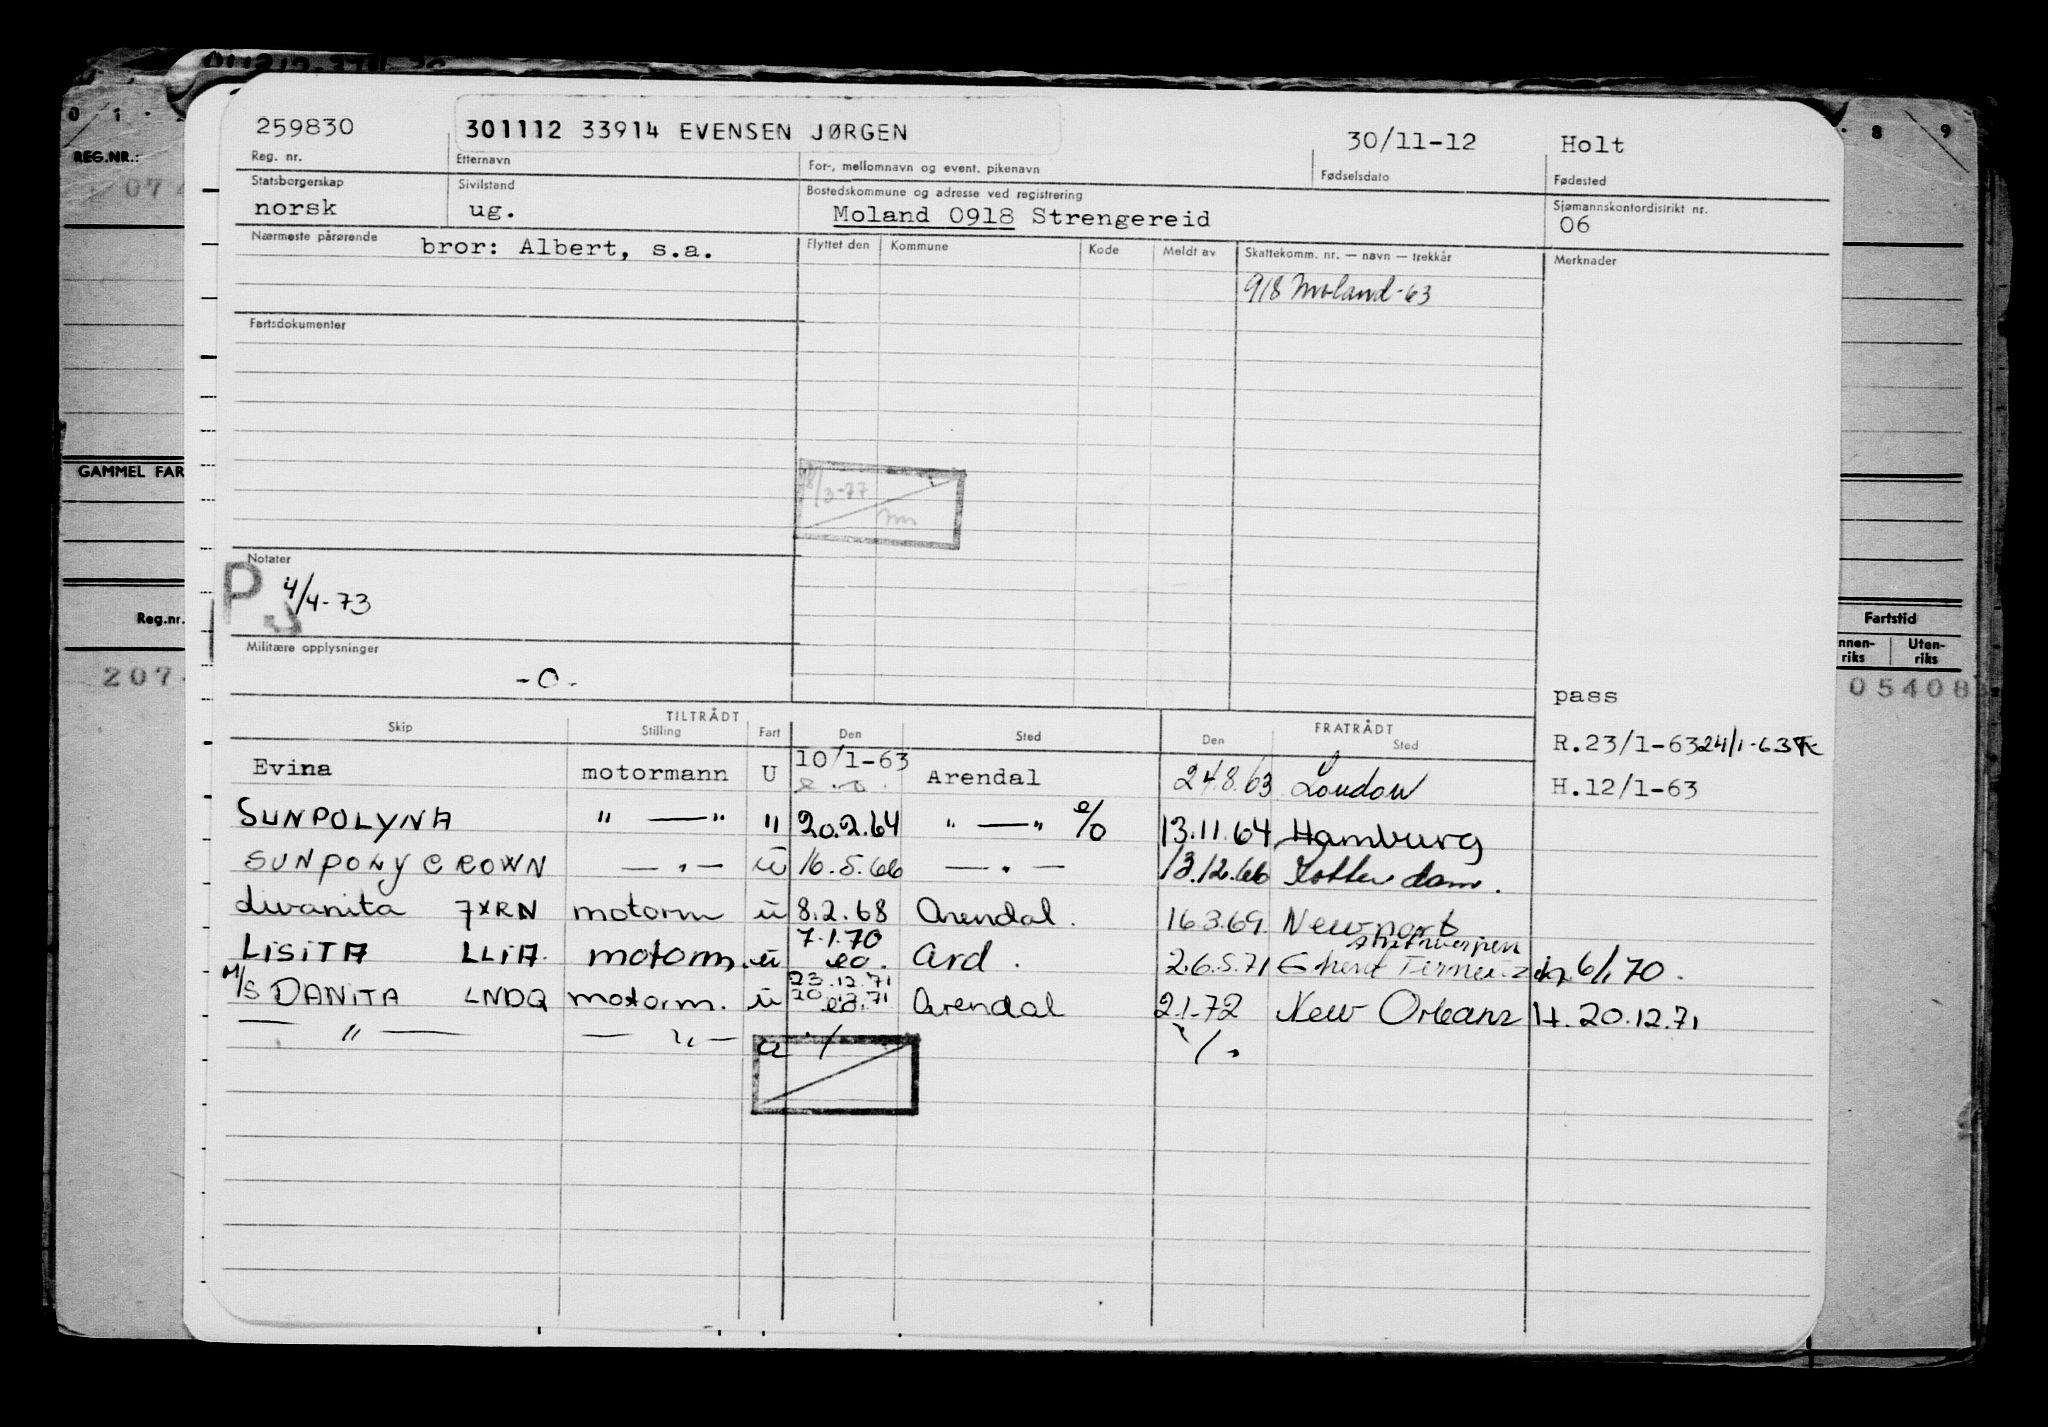 259830
301112 33914 EVENSEN JØRGEN
30/11-12
Holt
Reg. nr.
Etternavn
For-, mellomnavn og event. pikenavn
Fødselsdato
Fødested
Statsborgerskap
norsk
Sivilstand
ug.
Bostedskommune og adresse ved registrering
Moland 0918 Strengereid
Sjømannskontordistrikt nr.
06
Nærmeste pårørende
bror: Albert, s.a.
Flyttet den
Kommune
Kode
Meldt av
Skattekomm. nr. — navn — trekkår
Merknader
918 Moland-63
Fartsdokumenter
/3-77
Notater
P
4/4-73
Militære opplysninger
-0-
pass
R.23/1-63 24/1-63
H.12/1-63
TILTRÅDT
FRATRÅDT
Skip
Stilling
Fart
Den
Sted
Den
Sted
Evina motormann U 10/1-63 Arendal 24.8.63 London
SUNPOLYNA " — " " 20.2.64 " — " %  13.11.64 Hamburg
SUNPONY CROWN — " — u 16.5.66 — " — 13.12.66 Rotterdam.
7XRN motorm u 8.2.68 Arendal. 16.3.69 Newport
LISITA LLIA. motorm. u 7.1.70 eo. Ard. 26.5.71 Ghent 6/1 70.
M/S DANITA LNDQ motorm. u 23.12.71 20 71 Arendal 2.1.72 New Orleans H. 20.12.71
— " — — " — u
REG.NR.:
074
GAMMEL FAR
Reg.nr.
207
0 1
8 9
Fartstid
nnen-
riks
Uten-
riks
05408